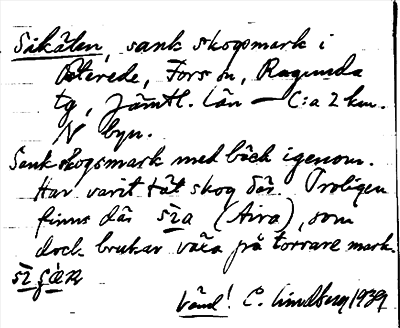 Sikåten, sank skogsmark i
Österede, Fors sn, Ragunda
tg, Jämtl. län — C:a 2 km.
N byn.
Sank skogsmark med bäck igenom.
Har varit tät skog där. Troligen
finns där sïa (Aira), som
dock brukar växa på torrare mark.
Vänd! C. Lindberg 1939